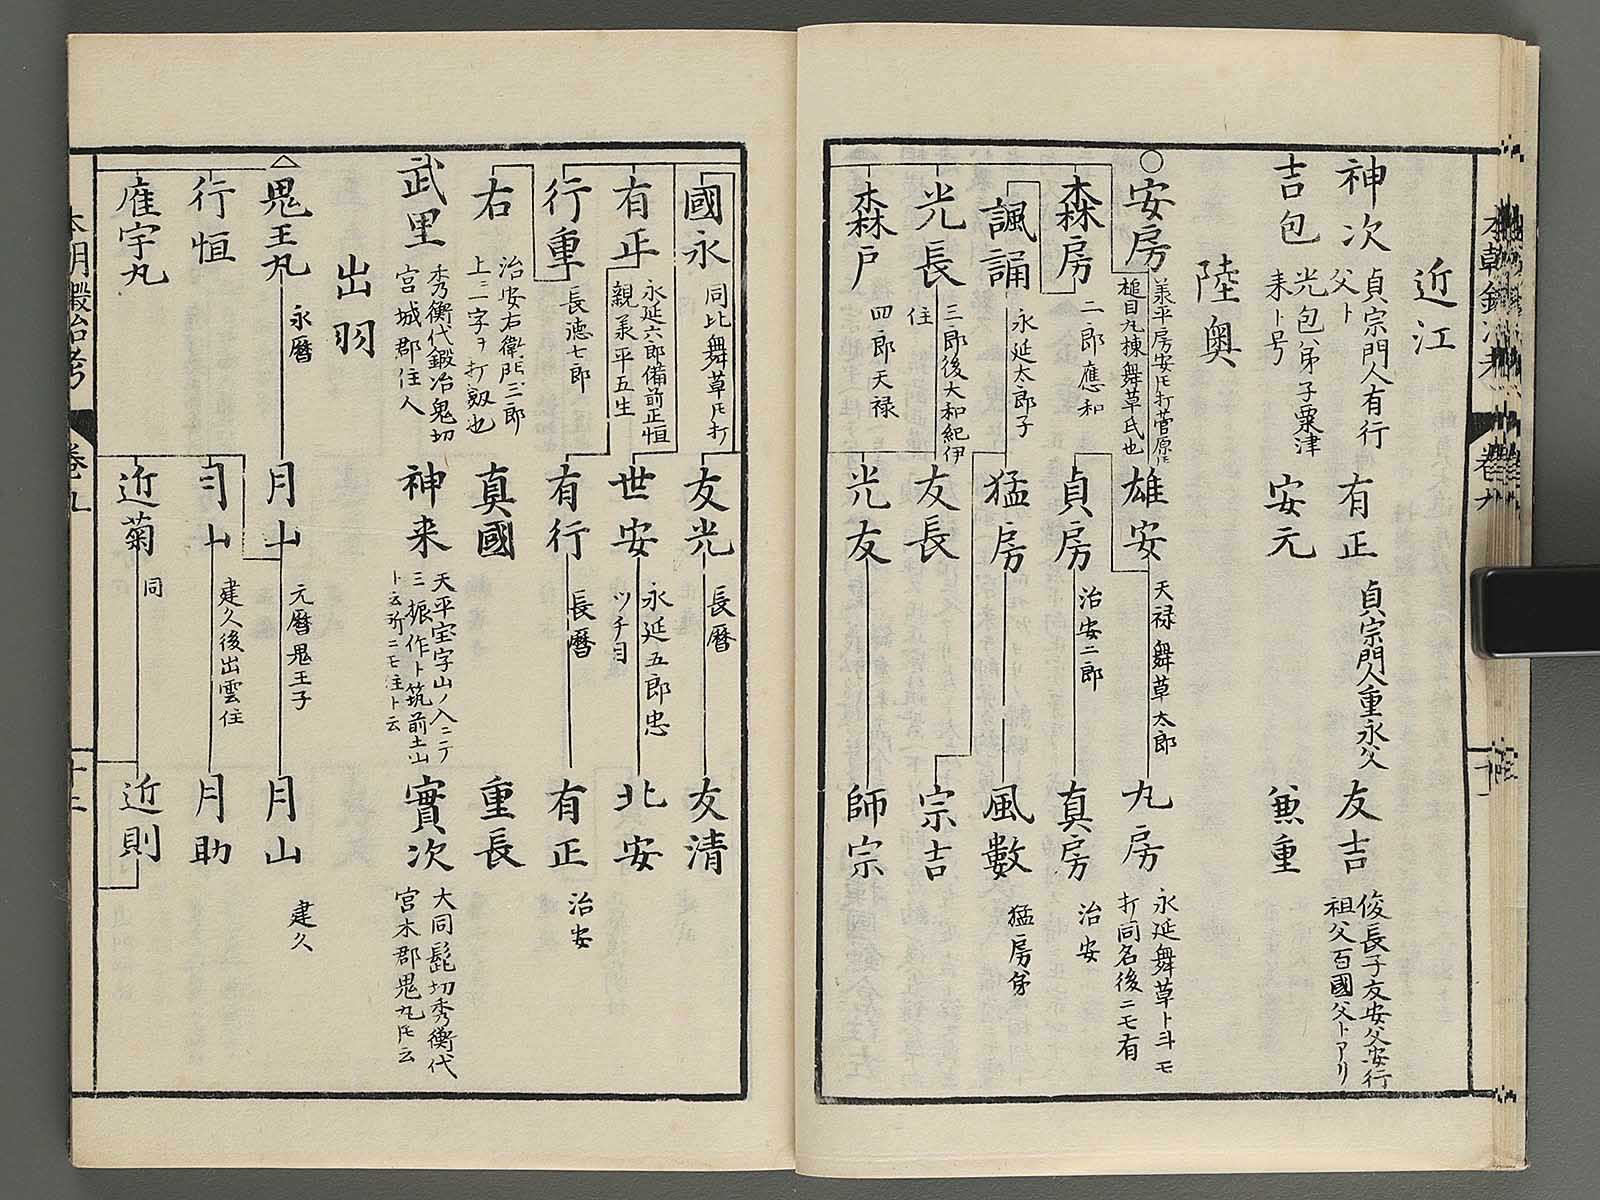 近江
神次
貞宗門人有行
父ト
有正
貞宗門人重永父
友吉
俊長子友安父安行
祖父百國父トアリ
吉包
光包弟子粟津
来ト号
安元
兼重
陸奥
安房
雄安
天禄舞草太郎
九房
永延舞草ト斗モ
打同名後ニモ有
森房
二郎應和
貞房
治安二郎
真房
治安
諷誦
永延太郎子
猛房
風數
猛房弟
光長
三郎後大和紀伊
住
友長
宗吉
森戸
四郎天禄
光友
師宗
國永
同比舞草氏打
友光
長暦
友清
有正
永延六郎備前正恒
親美平五生
世安
永延五郎忠
ツチ目
北安
行重
長徳七郎
有行
長暦
有正
治安
右
治安右衛門三郎
上ニ一字ヲ打釼也
真國
重長
武里
秀衡代鍛冶鬼切
宮城郡住人
神来
天平宝字山ノ入ニテ
三振作ト筑前土山
ト云所ニモ住ト云
實次
大同髭切秀衡代
宮木郡鬼丸氏云
出羽
鬼王丸
永暦
月山
元暦鬼王子
月山
建久
行恒
月山
建久後出雲住
月助
雁宇丸
近菊
同
近則
卷九
十二